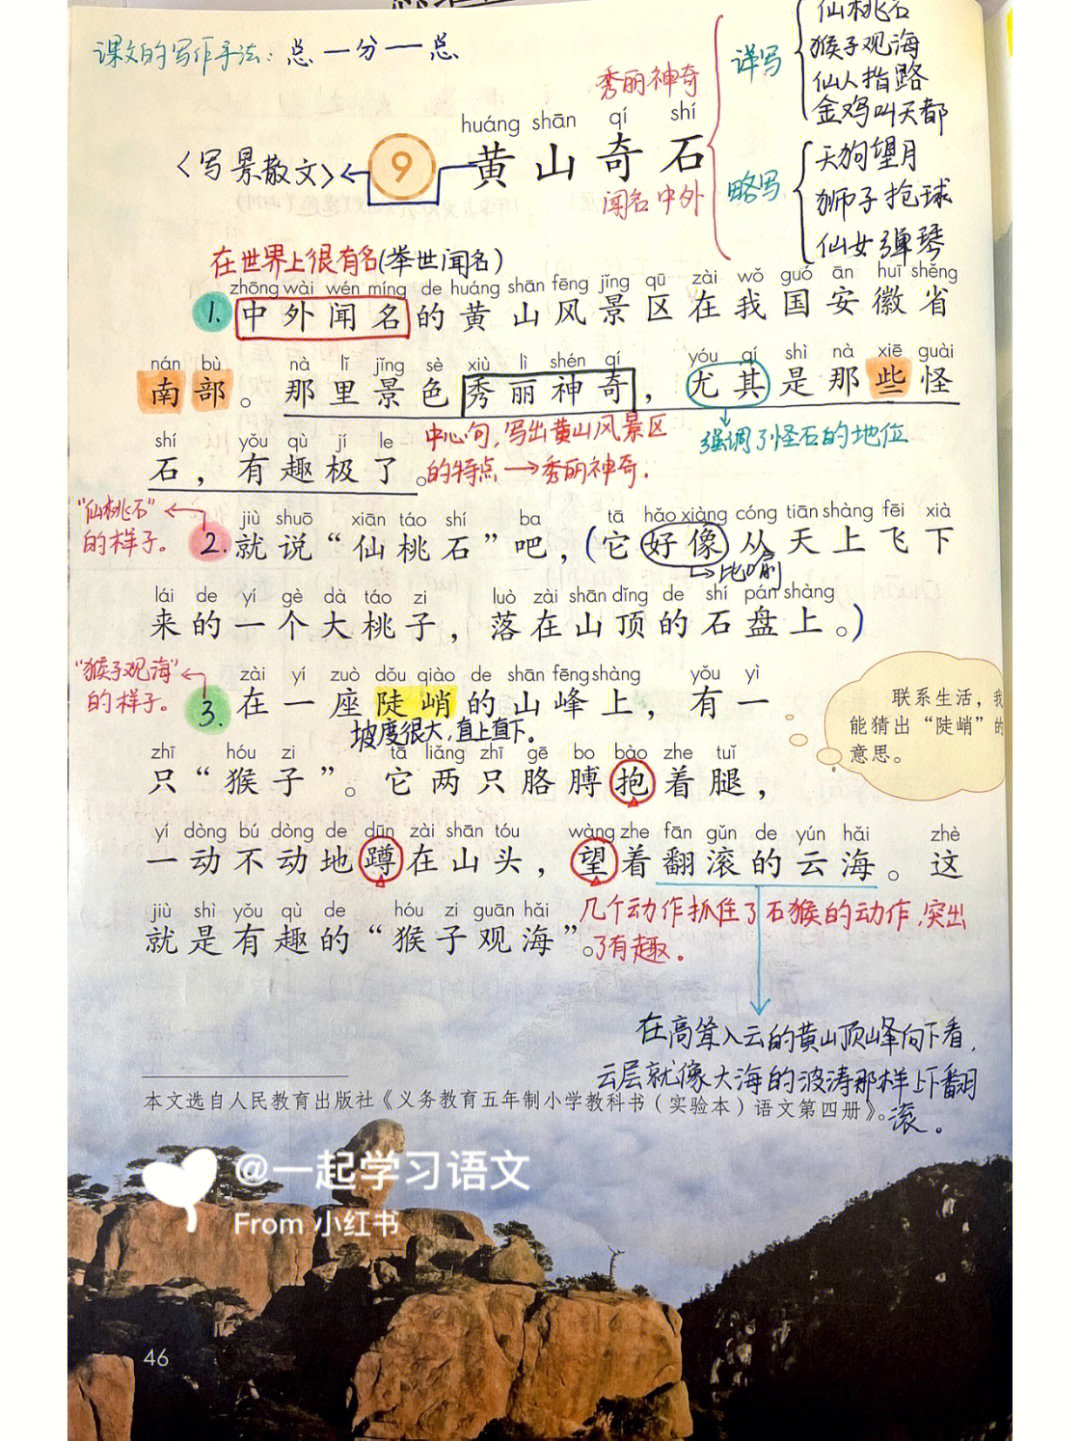 课文的写作手法：总一分一总
秀丽神奇
闻名中外
详写
仙桃石
猴子观海
仙人指路
金鸡叫天都
略写
天狗望月
狮子抢球
仙女弹琴
huáng shān qí shí
〈写景散文〉
9
黄山奇石
在世界上很有名(举世闻名)
zhōng wài wén míng de huáng shān fēng jǐng qū zài wǒ guó ān huī shěng
1. 中外闻名的黄山风景区在我国安徽省
nán bù nà lǐ jǐng sè xiù lì shén qí yóu qí shì nà xiē guài
南部。那里景色秀丽神奇，尤其是那些怪
shí yǒu qù jí le
石，有趣极了。
中心句，写出黄山风景区
的特点→秀丽神奇.
强调了怪石的地位
"仙桃石"
的样子。
jiù shuō xiān táo shí ba tā hǎo xiàng cóng tiān shàng fēi xià
2. 就说“仙桃石”吧，(它好像从天上飞下
比喻
lái de yí gè dà táo zi luò zài shān dǐng de shí pán shàng
来的一个大桃子，落在山顶的石盘上。)
"猴子观海"
的样子。
zài yí zuò dǒu qiào de shān fēng shàng yǒu yì
3. 在一座陡峭的山峰上，有一
坡度很大，直上直下。
联系生活，我
能猜出“陡峭”的
意思。
zhī hóu zi tā liǎng zhī gē bo bào zhe tuǐ
只“猴子”。它两只胳膊抱着腿，
yí dòng bú dòng de dūn zài shān tóu wàng zhe fān gǔn de yún hǎi zhè
一动不动地蹲在山头，望着翻滚的云海。这
jiù shì yǒu qù de hóu zi guān hǎi
就是有趣的“猴子观海”。
几个动作抓住了石猴的动作，突出
了有趣。
在高耸入云的黄山顶峰向下看，
云层就像大海的波涛那样上下翻
滚。
本文选自人民教育出版社《义务教育五年制小学教科书（实验本）语文第四册》。
@一起学习语文
From 小红书
46